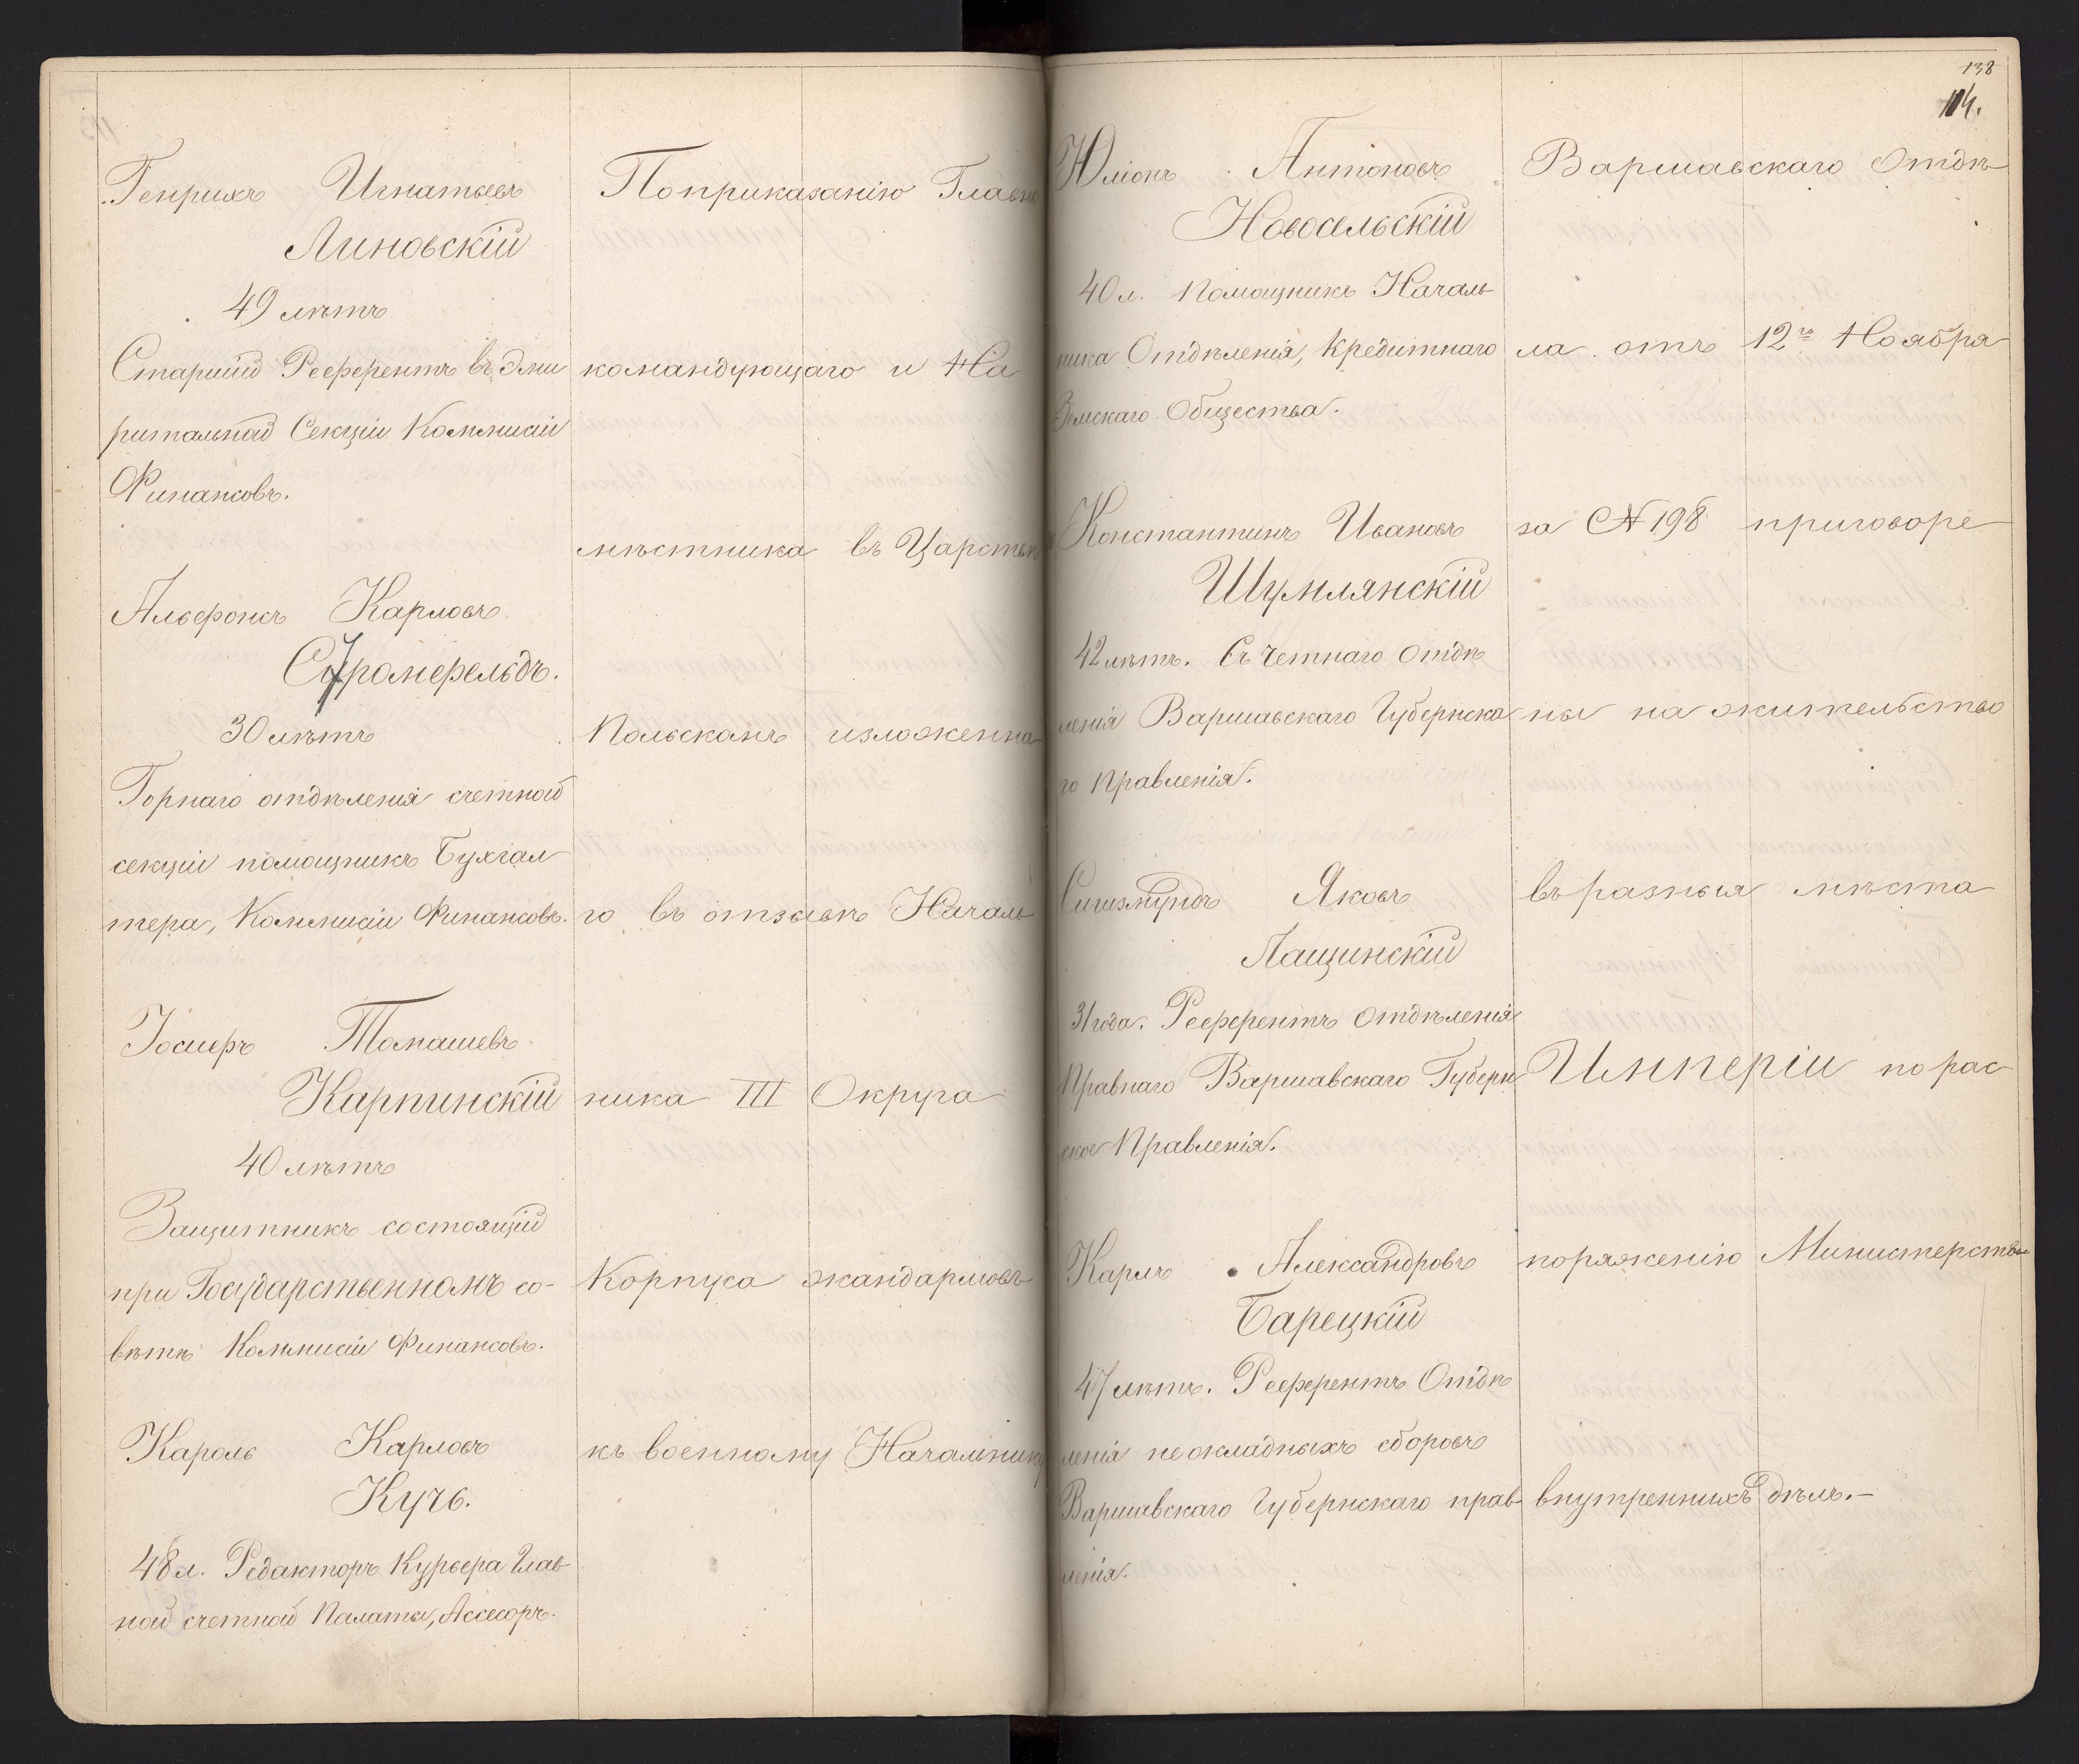 Генрихъ Игнатьевъ
Линовскій
49 лѣтъ
Старшій Референтъ въ Эми
ритальной Секціи Коммисіи
Финансовъ.
Альфонсъ Карловъ
Стромфельдъ.
30 лѣтъ
Горнаго отдѣленія счетной
секціи помощникъ Бухгал
тера, Коммисіи Финансовъ.
Іосифъ Томашевъ
Карпинскій
40 лѣтъ
Защитникъ состоящій
при Государственномъ со-
вѣтѣ Коммисіи Финансовъ.
Кароль Карловъ
Кучъ.
48 л. Редакторъ Курьера Глав
ной счетной Палаты, Ассесоръ.
По приказанію Главно
командующаго и На
мѣстника въ Царствѣ
Польскомъ изложенна
го въ отзывѣ Началь
ника III Округа
Корпуса жандармовъ
къ военному Начальнику
138
114.
Юліонъ Антоновъ
Новосельскій
40 л. Помощникъ Началь
ника Отдѣленія, Кредитнаго
Земскаго Общества.
Константинъ Ивановъ
Шумлянскій
42 лѣтъ. Съ Четнаго Отдѣ
ленія Варшавскаго Губернска
го Правленія.
Сигизмундъ Яковъ
Лащинскій
31 года. Референтъ Отдѣленія
Правнаго Варшавскаго Губерн
ское Правленія.
Карлъ Александровъ
Барецкій
47 лѣтъ. Референтъ Отдѣ
ленія неокладныхъ сборовъ
Варшавскаго Губернскаго прав
ленія.
Варшавскаго Отдѣ
ла отъ 12го Ноября
за № 198 приговоре
ны на жительство
въ разныя мѣста
Имперіи по рас
поряженію Министерства
внутреннихъ дѣлъ.-